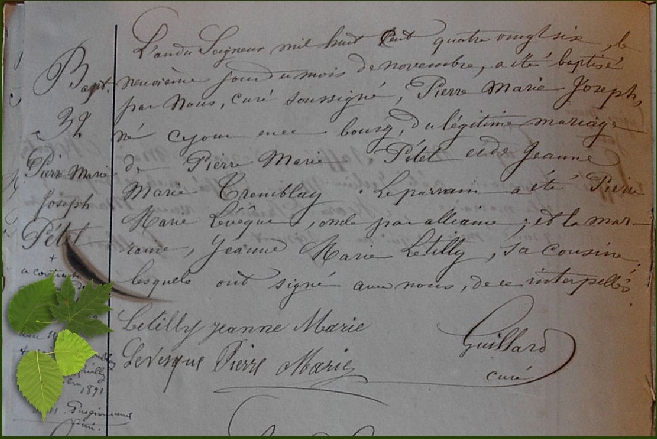 L'an du Seigneur mil huit cent quatre vingt six, le
Bapt. neuvième jour du mois de novembre, a été baptisé
par Nous, curé soussigné, Pierre Marie Joseph,
39
né ce jour en ce bourg, du légitime mariage
Pierre Marie
de Pierre Marie Pétet et de Jeanne
Joseph
Marie Tremblay. Le parrain a été Pierre
Pétet
Marie Levêque, oncle par alliance, et la mar-
raine, Jeanne Marie Letilly, sa cousine
lesquels ont signé avec nous, de ce interpellés.
Letilly jeanne Marie
Levesque Pierre Marie
Guillard
curé
1891